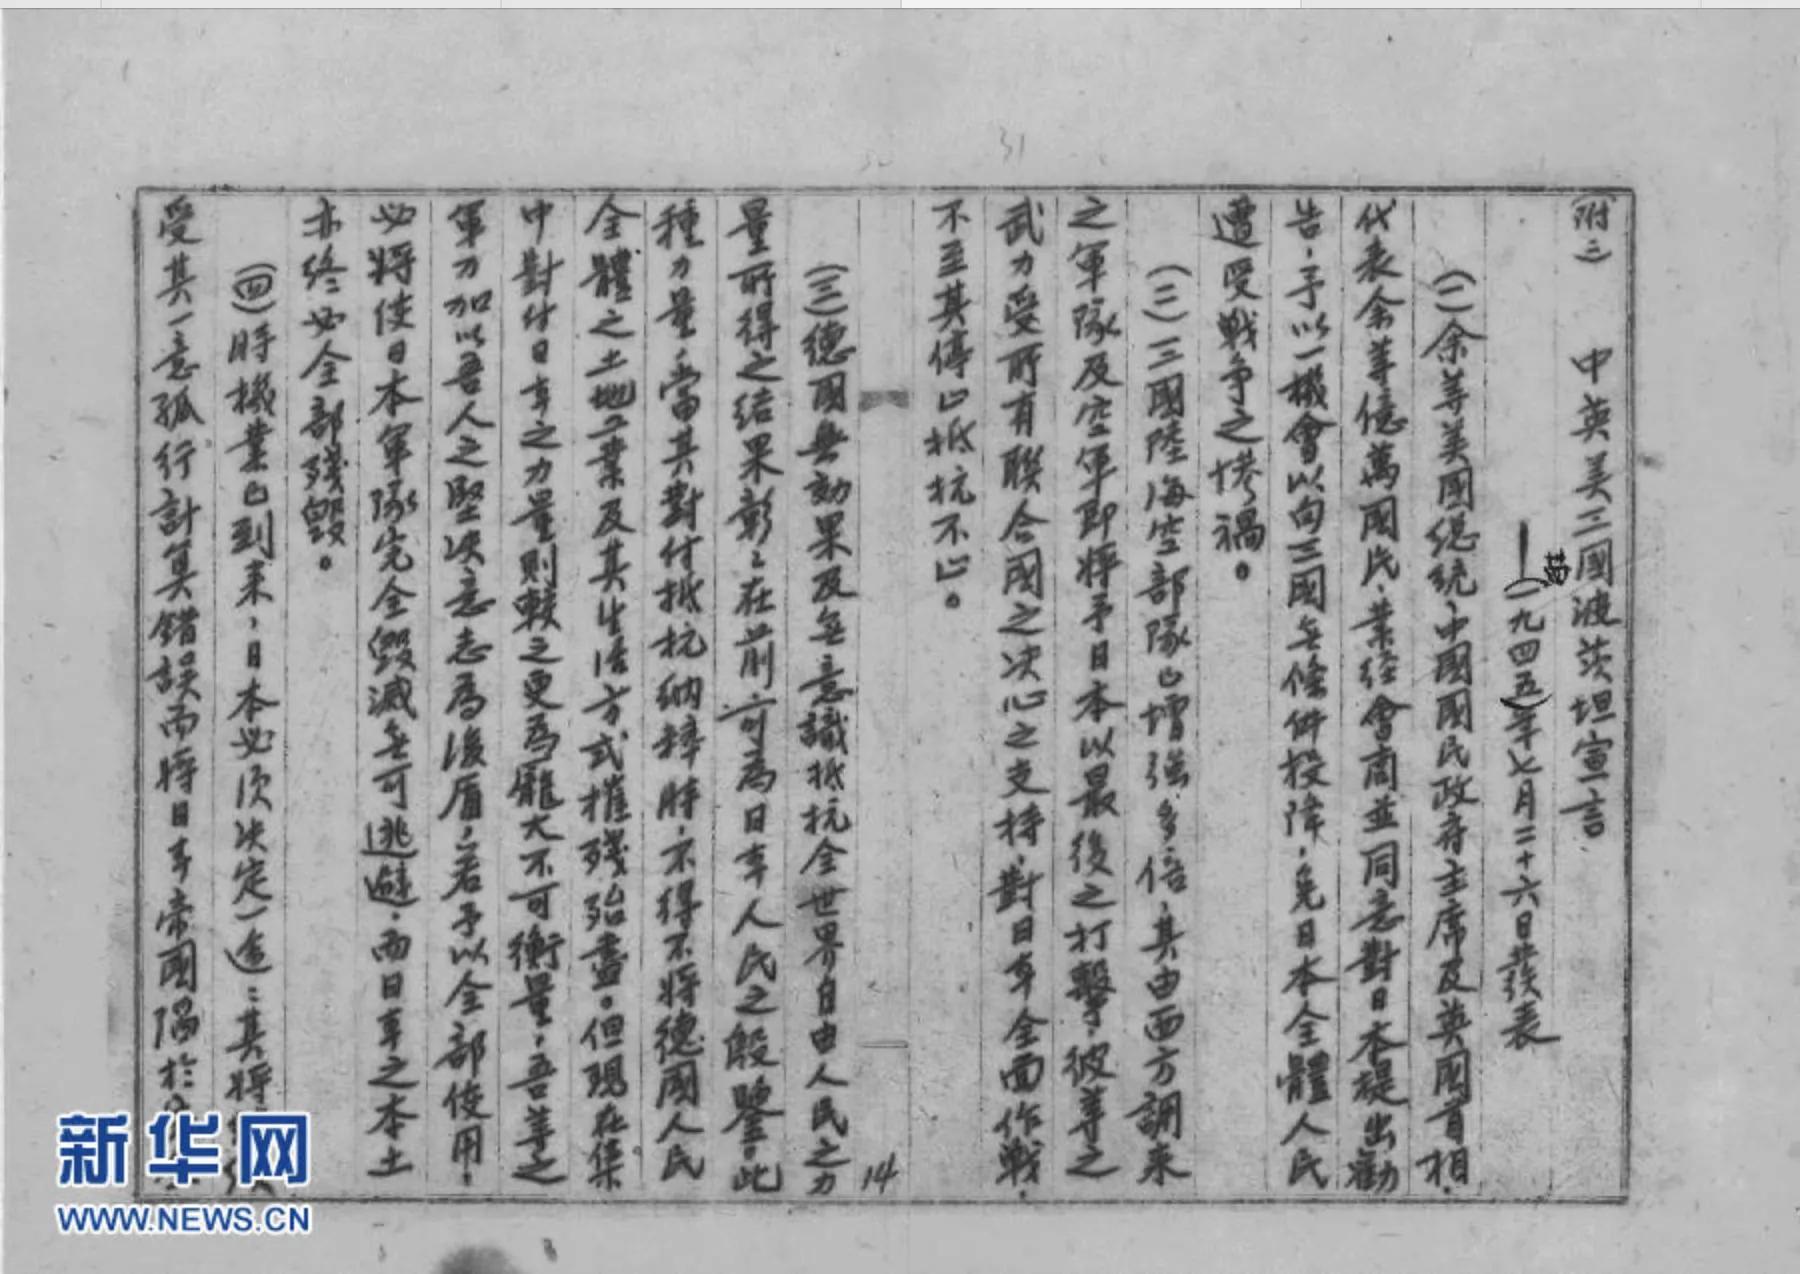 (附二) 中英美三國波茨坦宣言
(一九四五)年七月二十六日發表
(一)余等美國總統、中國國民政府主席及英國首相、
代表余等億萬國民、業經會商並同意對日本提出勸
告，予以一機會以向三國無條件投降，免日本全體人民
遭受戰爭之慘禍。
(二)三國陸海空部隊已增強多倍，其由西方調來
之軍隊及空軍即將予日本以最後之打擊，彼等之
武力受所有聯合國之決心之支持，對日本全面作戰，
不至其停止抵抗不止。
14
(三)德國無効果及無意識抵抗全世界自由人民之力
量所得之結果彰彰在前，可為日本人民之殷鑒。此
種力量，當其對付抵抗納粹時，不得不將德國人民
全體之土地工業及其生活方式摧殘殆盡。但現在集
中對付日本之力量則較之更為龐大不可衡量，吾等之
軍力加以吾人之堅決意志為後盾，若予以全部使用，
必將使日本軍隊完全毀滅無可逃避，而日本之本土
亦終必全部殘毀。
(四)時機業已到來，日本必須決定一途：其將
受其一意孤行計算錯誤而將日本帝國陷於
31
新华网
WWW.NEWS.CN